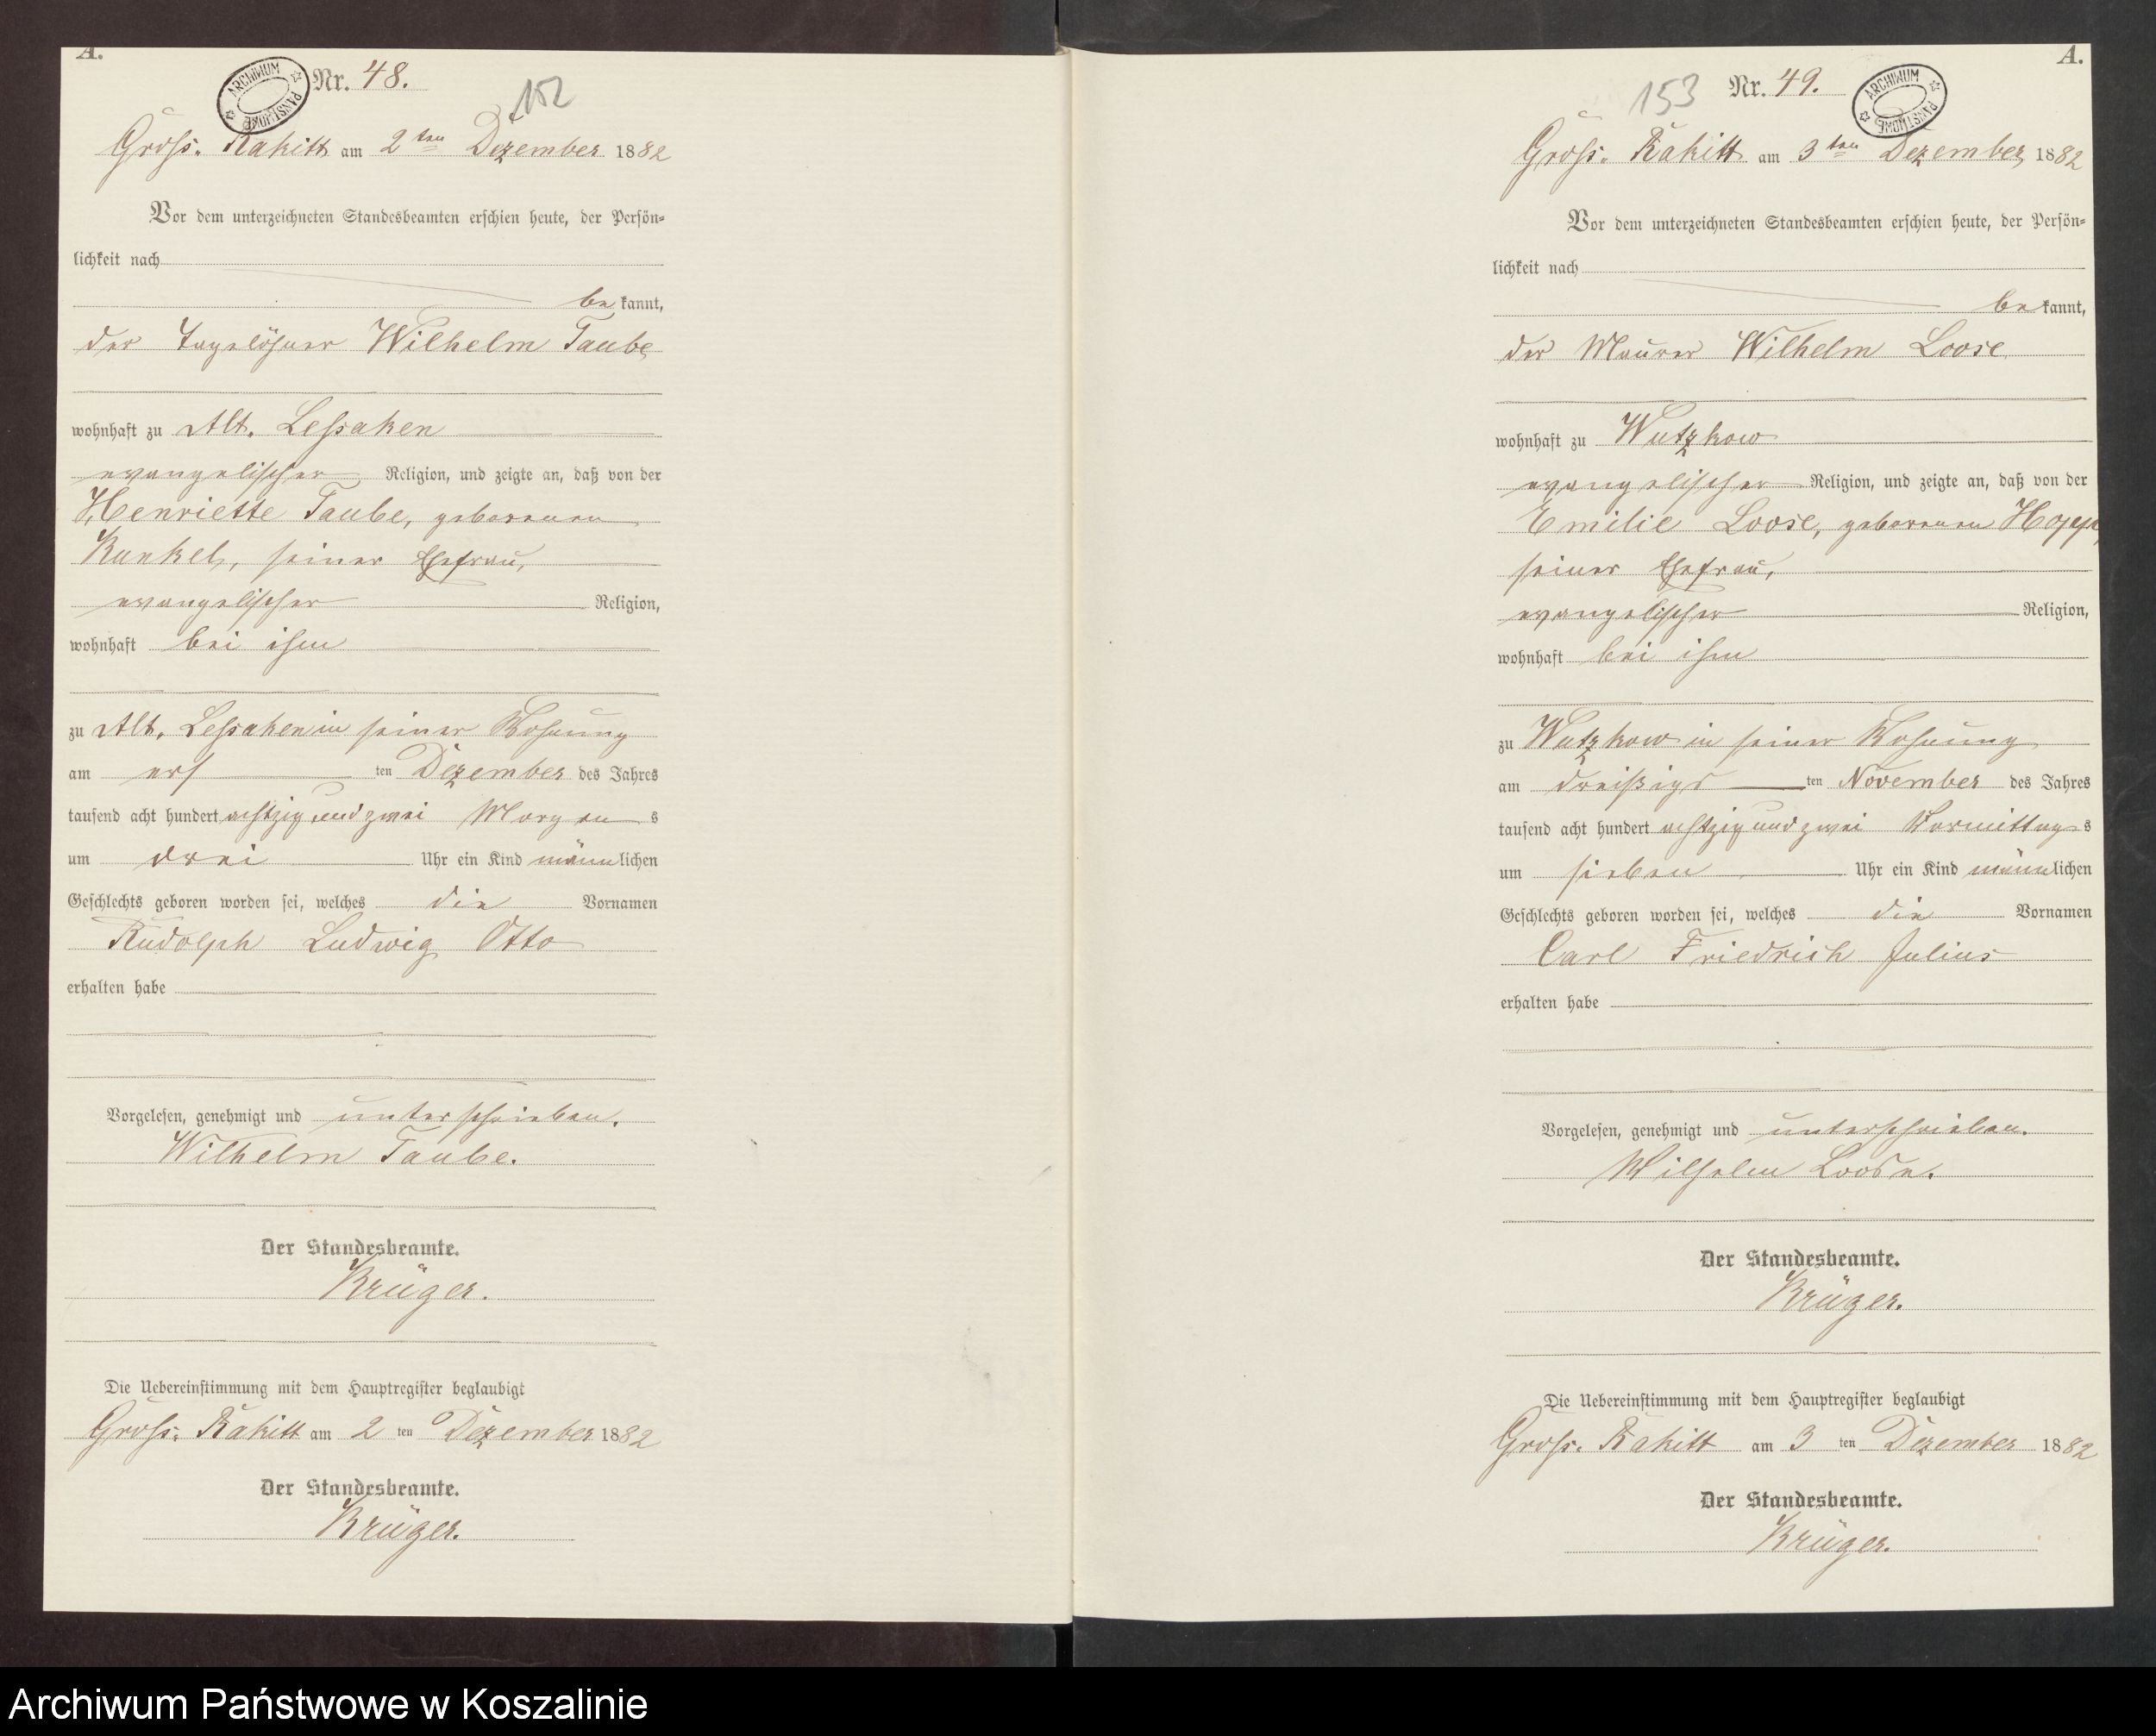 A.
ARCHIWUM PAŃSTWOWE
Nr. 48.
152
Gross. Rakitt am 2ten Dezember 1882
Vor dem unterzeichneten Standesbeamten erschien heute, der Persön-
lichkeit nach
be kannt,
der Tagelöhner Wilhelm Taube
wohnhaft zu Alt. Lessaken
evangelischer Religion, und zeigte an, daß von der
Henriette Taube, geborenen
Kunkel, seiner Ehefrau,
evangelischer Religion,
wohnhaft bei ihm
zu Alt. Lessaken in seiner Wohnung
am ers ten Dezember des Jahres
tausend acht hundert achtzig und zwei Morgen s
um drei Uhr ein Kind männlichen
Geschlechts geboren worden sei, welches die Vornamen
Rudolph Ludwig Otto
erhalten habe
Vorgelesen, genehmigt und unterschrieben.
Wilhelm Taube.
Der Standesbeamte.
Krüger.
Die Uebereinstimmung mit dem Hauptregister beglaubigt
Gross. Rakitt am 2 ten Dezember 1882
Der Standesbeamte.
Krüger.
A.
153
Nr. 49.
ARCHIWUM PAŃSTWOWE
Gross. Rakitt am 3ten Dezember 1882
Vor dem unterzeichneten Standesbeamten erschien heute, der Persön-
lichkeit nach
be kannt,
der Maurer Wilhelm Loose
wohnhaft zu Wutzkow
evangelischer Religion, und zeigte an, daß von der
Emilie Loose, geborenen
seiner Ehefrau,
evangelischer Religion,
wohnhaft bei ihm
zu Wutzkow in seiner Wohnung
am dreißigs ten November des Jahres
tausend acht hundert achtzig und zwei Vormittag s
um sieben Uhr ein Kind männlichen
Geschlechts geboren worden sei, welches die Vornamen
Carl Friedrich Julius
erhalten habe
Vorgelesen, genehmigt und unterschrieben.
Wilhelm Loose.
Der Standesbeamte.
Krüger.
Die Uebereinstimmung mit dem Hauptregister beglaubigt
Gross. Rakitt am 3 ten Dezember 1882
Der Standesbeamte.
Krüger.
Archiwum Państwowe w Koszalinie